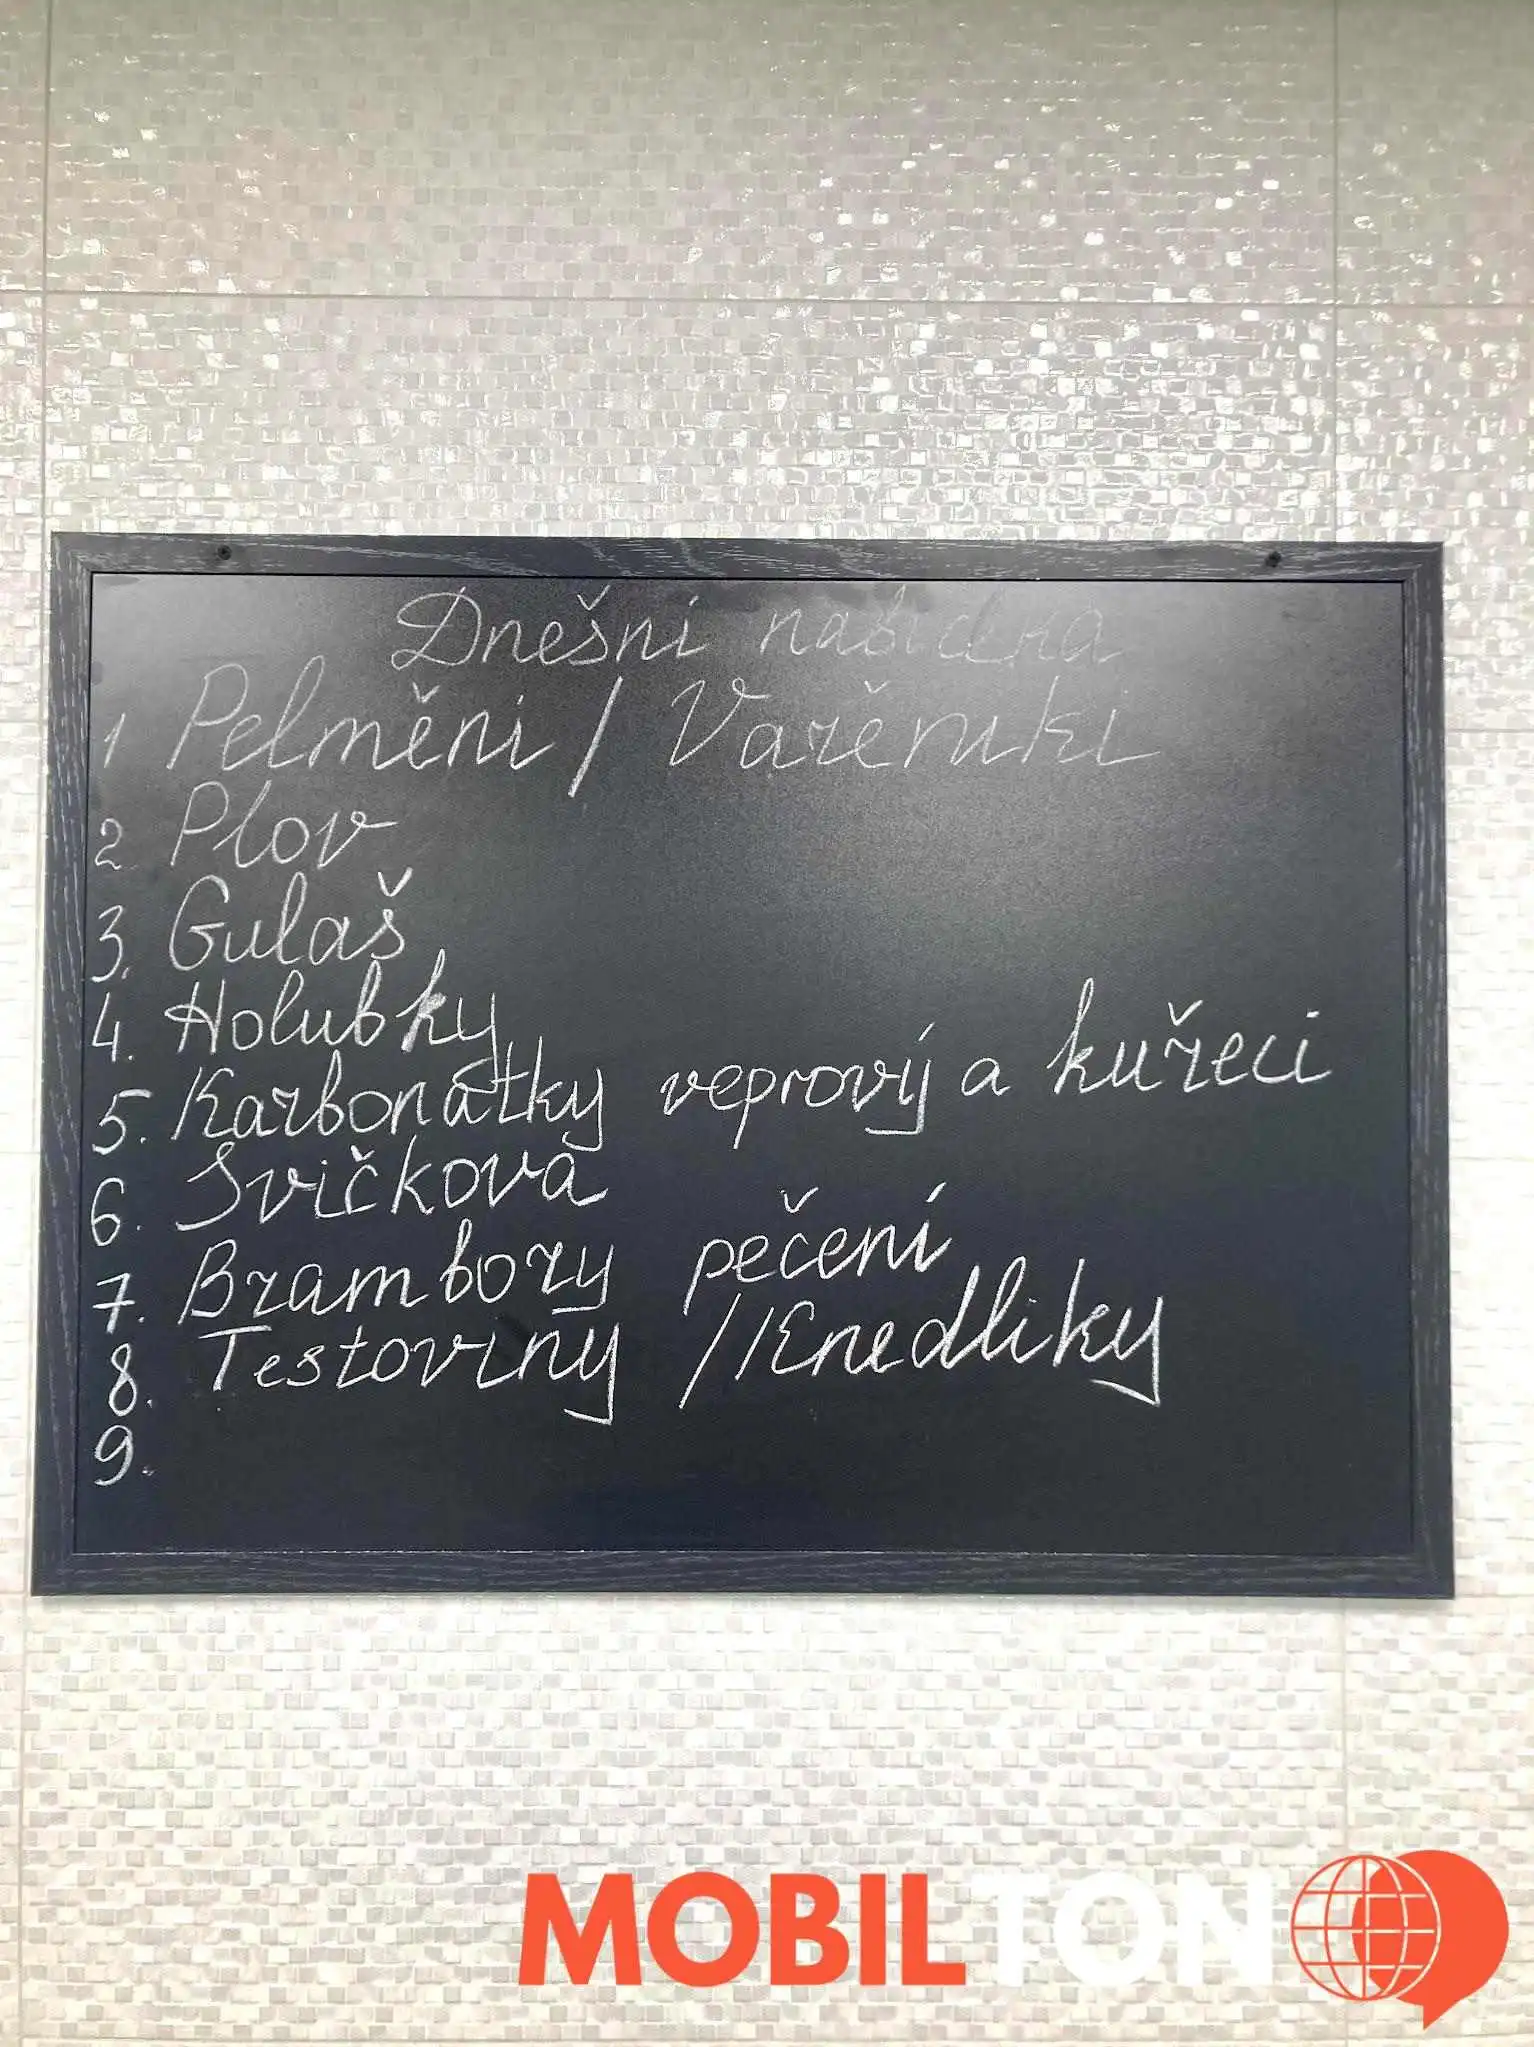 Dnešni nabidka
1 Pelměni / Vařeniki
2 Plov
3. Gulaš
4. Holubky
5. Karbonátky veprový a kuřeci
6. Svičkova
7. Brambory pečení
8. Testoviny / Knedliky
9.
MOBILTON